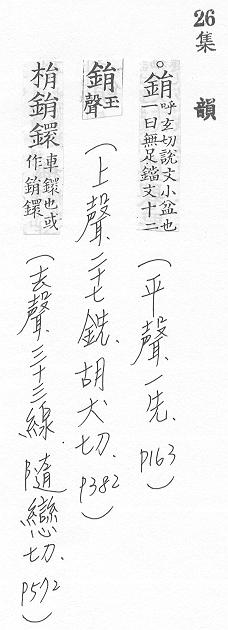 26 集韻
。鋗 呼玄切說文小盆也一曰無足鐺文十二 (平聲一先. P163)
鋗 玉聲 (上聲二十七銑. 胡犬切. P382)
梋鋗鐶 車鐶也或作鋗鐶 (去聲三十三線. 隨戀切. P572)